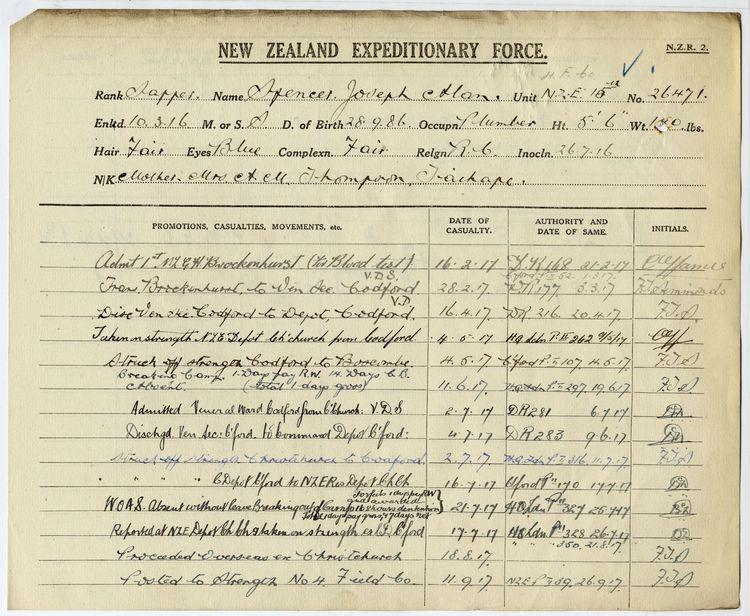 NEW ZEALAND EXPEDITIONARY FORCE.
N.Z.R. 2.
Rank Sapper. Name Spencer Joseph Alan. Unit N.Z.E. 15th No. 26471.
Enltd. 10.3.16 M. or S. S D. of Birth 28.9.86 Occupn. Plumber Ht. 5' 6" Wt. 140 lbs.
Hair Fair Eyes Blue Complexn. Fair Relgn R.C Inocln. 26.7.16
N/K Mother. Mrs A M. Thompson, Taihape.
PROMOTIONS, CASUALTIES, MOVEMENTS, etc. DATE OF CASUALTY. AUTHORITY AND DATE OF SAME. INITIALS.
Admt 1st N.Z.G.H Brockenhurst (for Blood test) 16.2.17 D.R 168 21.2.17
V.D.S.
Trans. Brockenhurst, to Ven Sec Codford 28.2.17 D.R 177 5.3.17
V.D.
Disc Ven Sec Codford to Depot, Codford. 16.4.17 DR 216 20.4.17 F.J.S
Taken on strength N.Z.E Depot Ch'church from Codford 4.5.17 HQ Ldn P.II 262 9/5/17
Struck off strength Codford to Boscombe 4.5.17 C'ford P.II 107 14.5.17 F.J.S
Breaking Camp. 1 Days pay R.W. 14 Days C.B.
Absent. (total 1 days gross) 11.6.17 H.Q. Ldn P.II 297 19.6.17 F.J.S
Admitted Veneral Ward Codford from C'Church. V.D.S 2.7.17 DR 281 6.7.17
Dischgd. Ven: Sec: C'ford. to Command Depot C'ford: 4.7.17 DR 283 9.6.17
Struck off strength Christchurch to Codford 2.7.17 H.Q. Ldn P.II 316 11.7.17 F.J.S
" " " C Depot C'ford to NZE Res Depot Ch Ch 16.7.17 C'ford P II 170 17.7.17
Forfeits 1 days pay RW
W.O.A.S. Absent without leave Breaking out of Camp 168 hours detention
Total 1 days pay gross, 7 days net 21.7.17 HQ Lon P II 327 25.7.17
Reported at N.Z.E Depot Ch Ch & taken on strength ex C.D. C'ford 17.7.17 HQ Lon P II 328 26.7.17
" " 350. 21.8.17
Proceeded Overseas ex Christchurch 18.8.17. F.J.S
Posted to Strength No 4. Field Co. 11.9.17. NZE P.II 39. 26.9.17. F.J.S